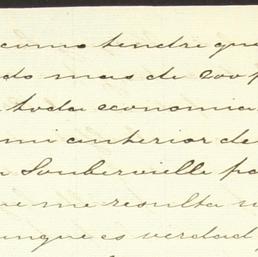 como tendre que
do mas de coop
toda economia
mi anterior de
Soubervielle pa
ue me resulta u
unque es verdad,